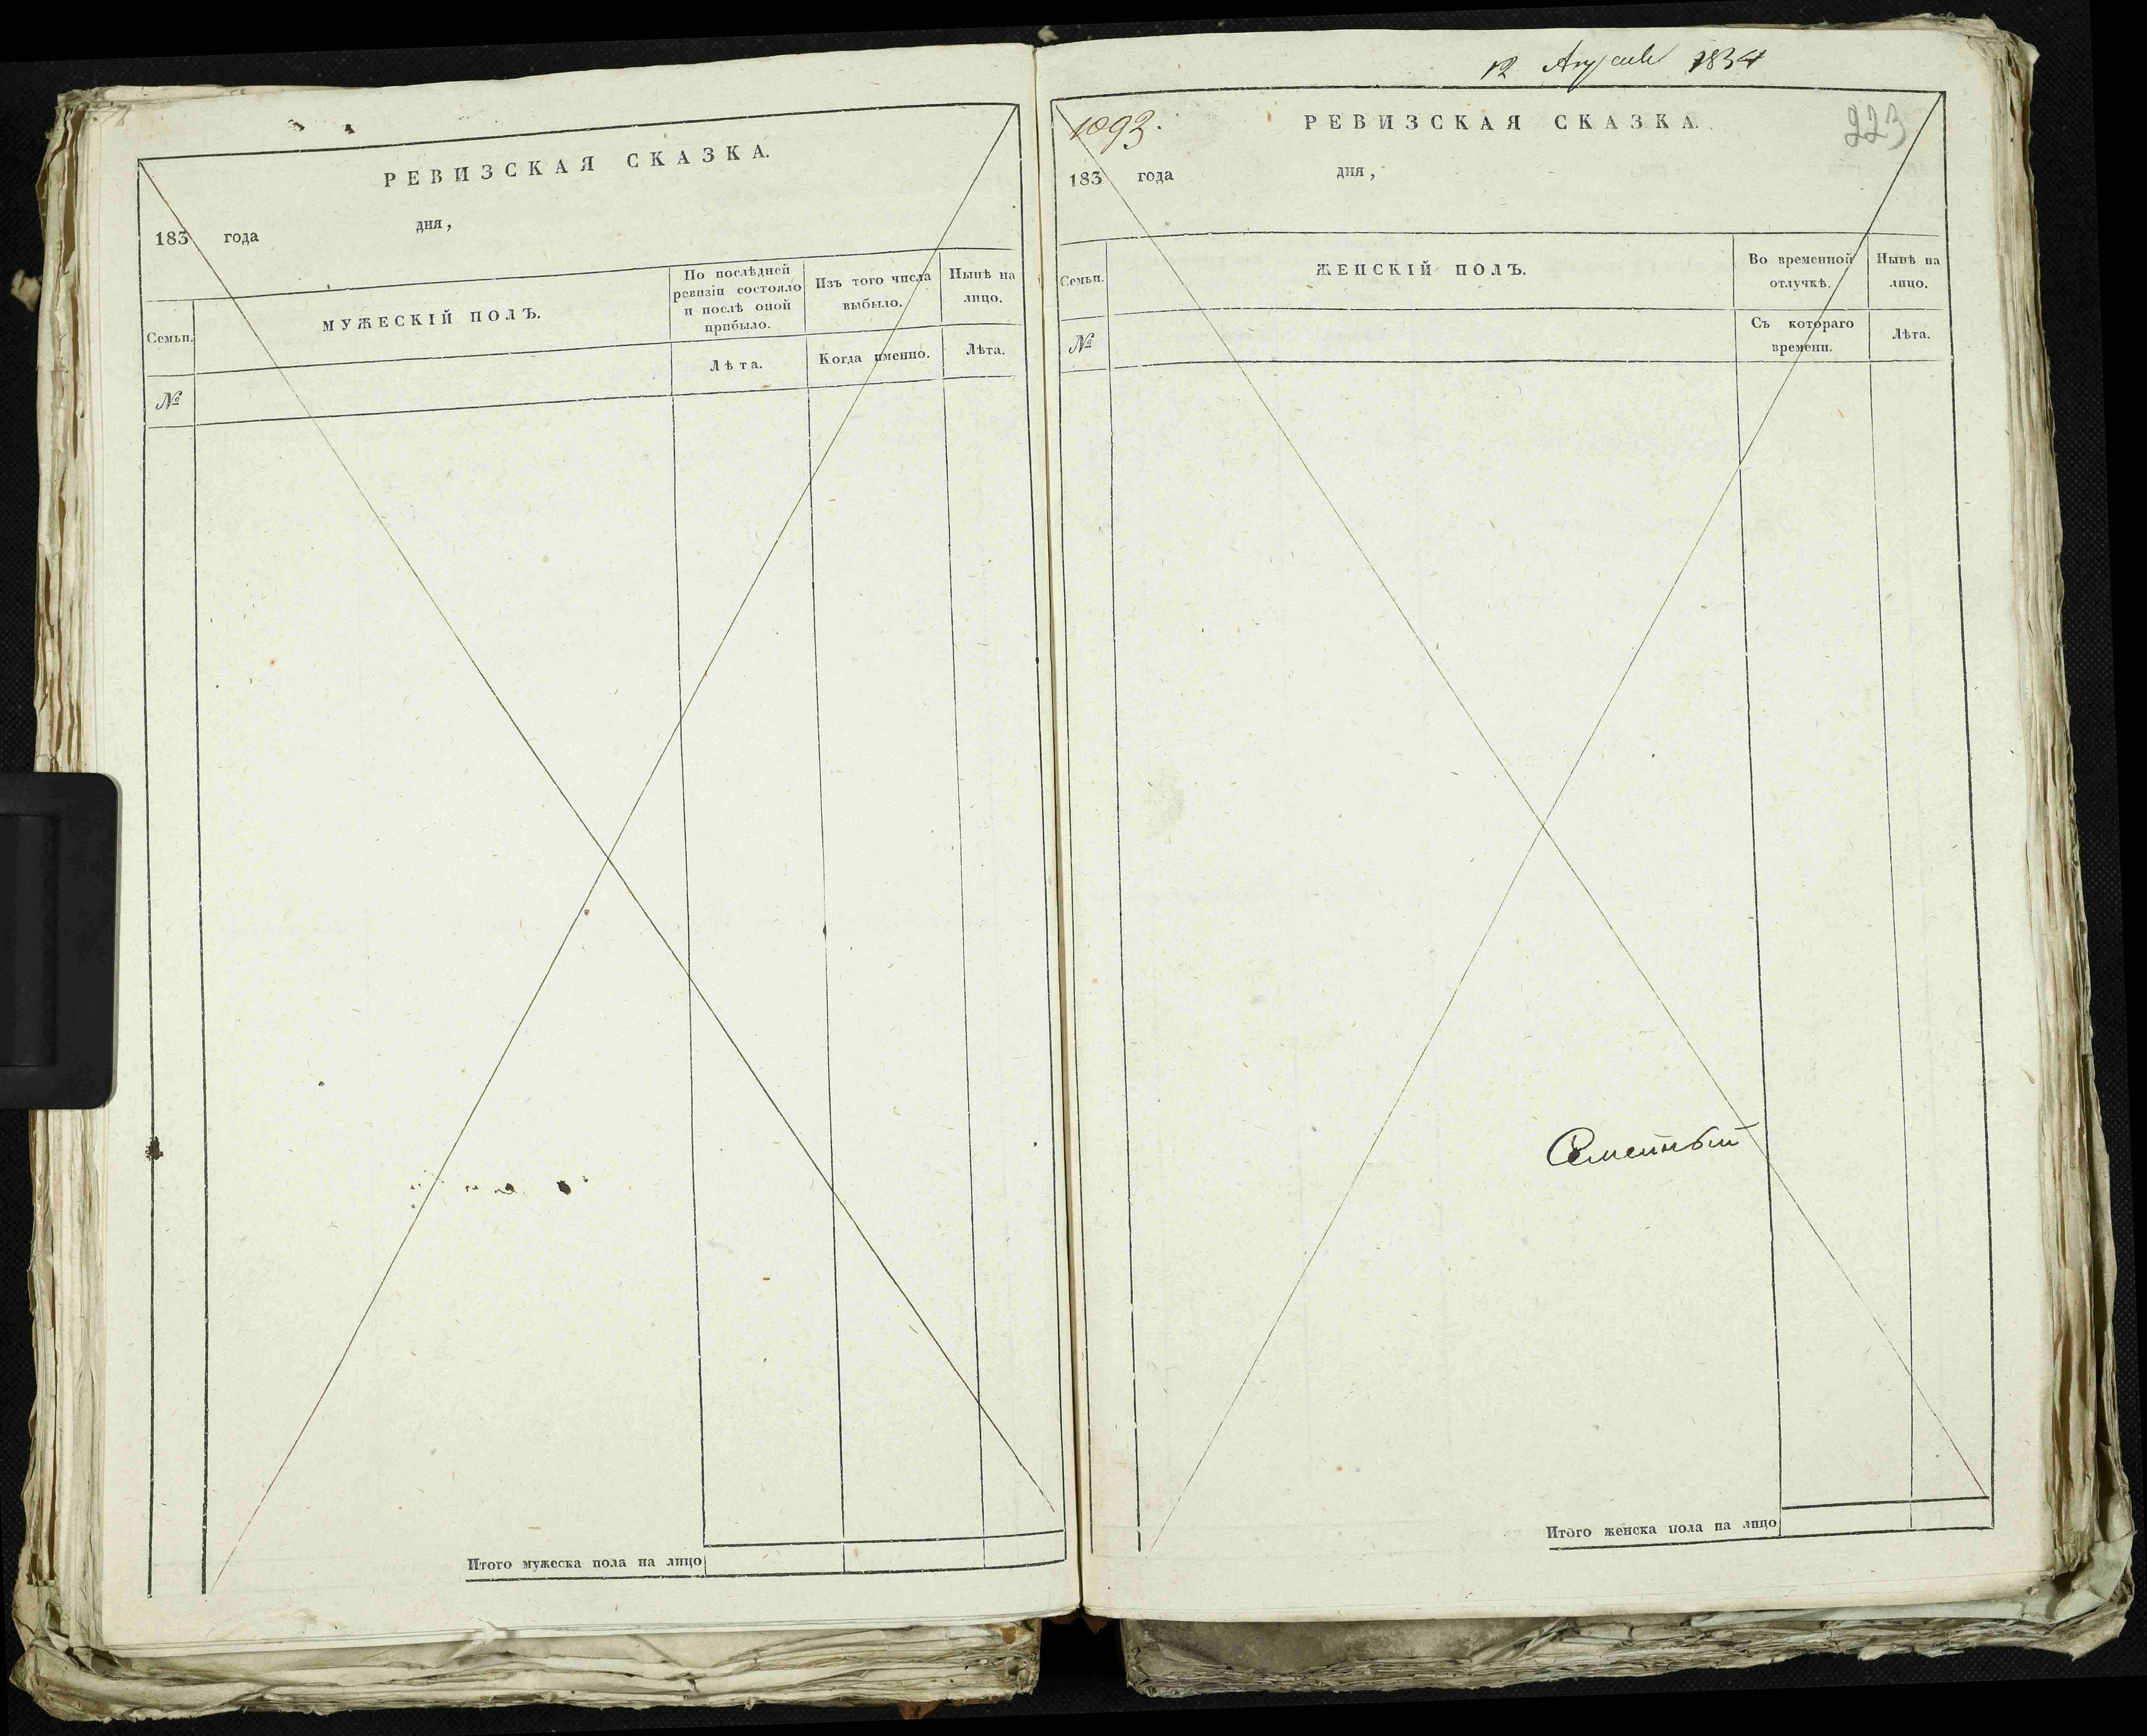 РЕВИЗСКАЯ СКАЗКА.
183 года дня,
Семьи.
МУЖЕСКІЙ ПОЛЪ.
По послѣдней
ревизіи состояло
и послѣ оной
прибыло.
Изъ того числа
выбыло.
Нынѣ на
лицо.
Лѣта.
Когда именно.
Лѣта.
№
Итого мужеска пола на лицо
12 1834
1093.
РЕВИЗСКАЯ СКАЗКА.
223
183 года дня,
Семьи.
ЖЕНСКІЙ ПОЛЪ.
Во временной
отлучкѣ.
Нынѣ на
лицо.
№
Съ котораго
времени.
Лѣта.
Итого женска пола на лицо